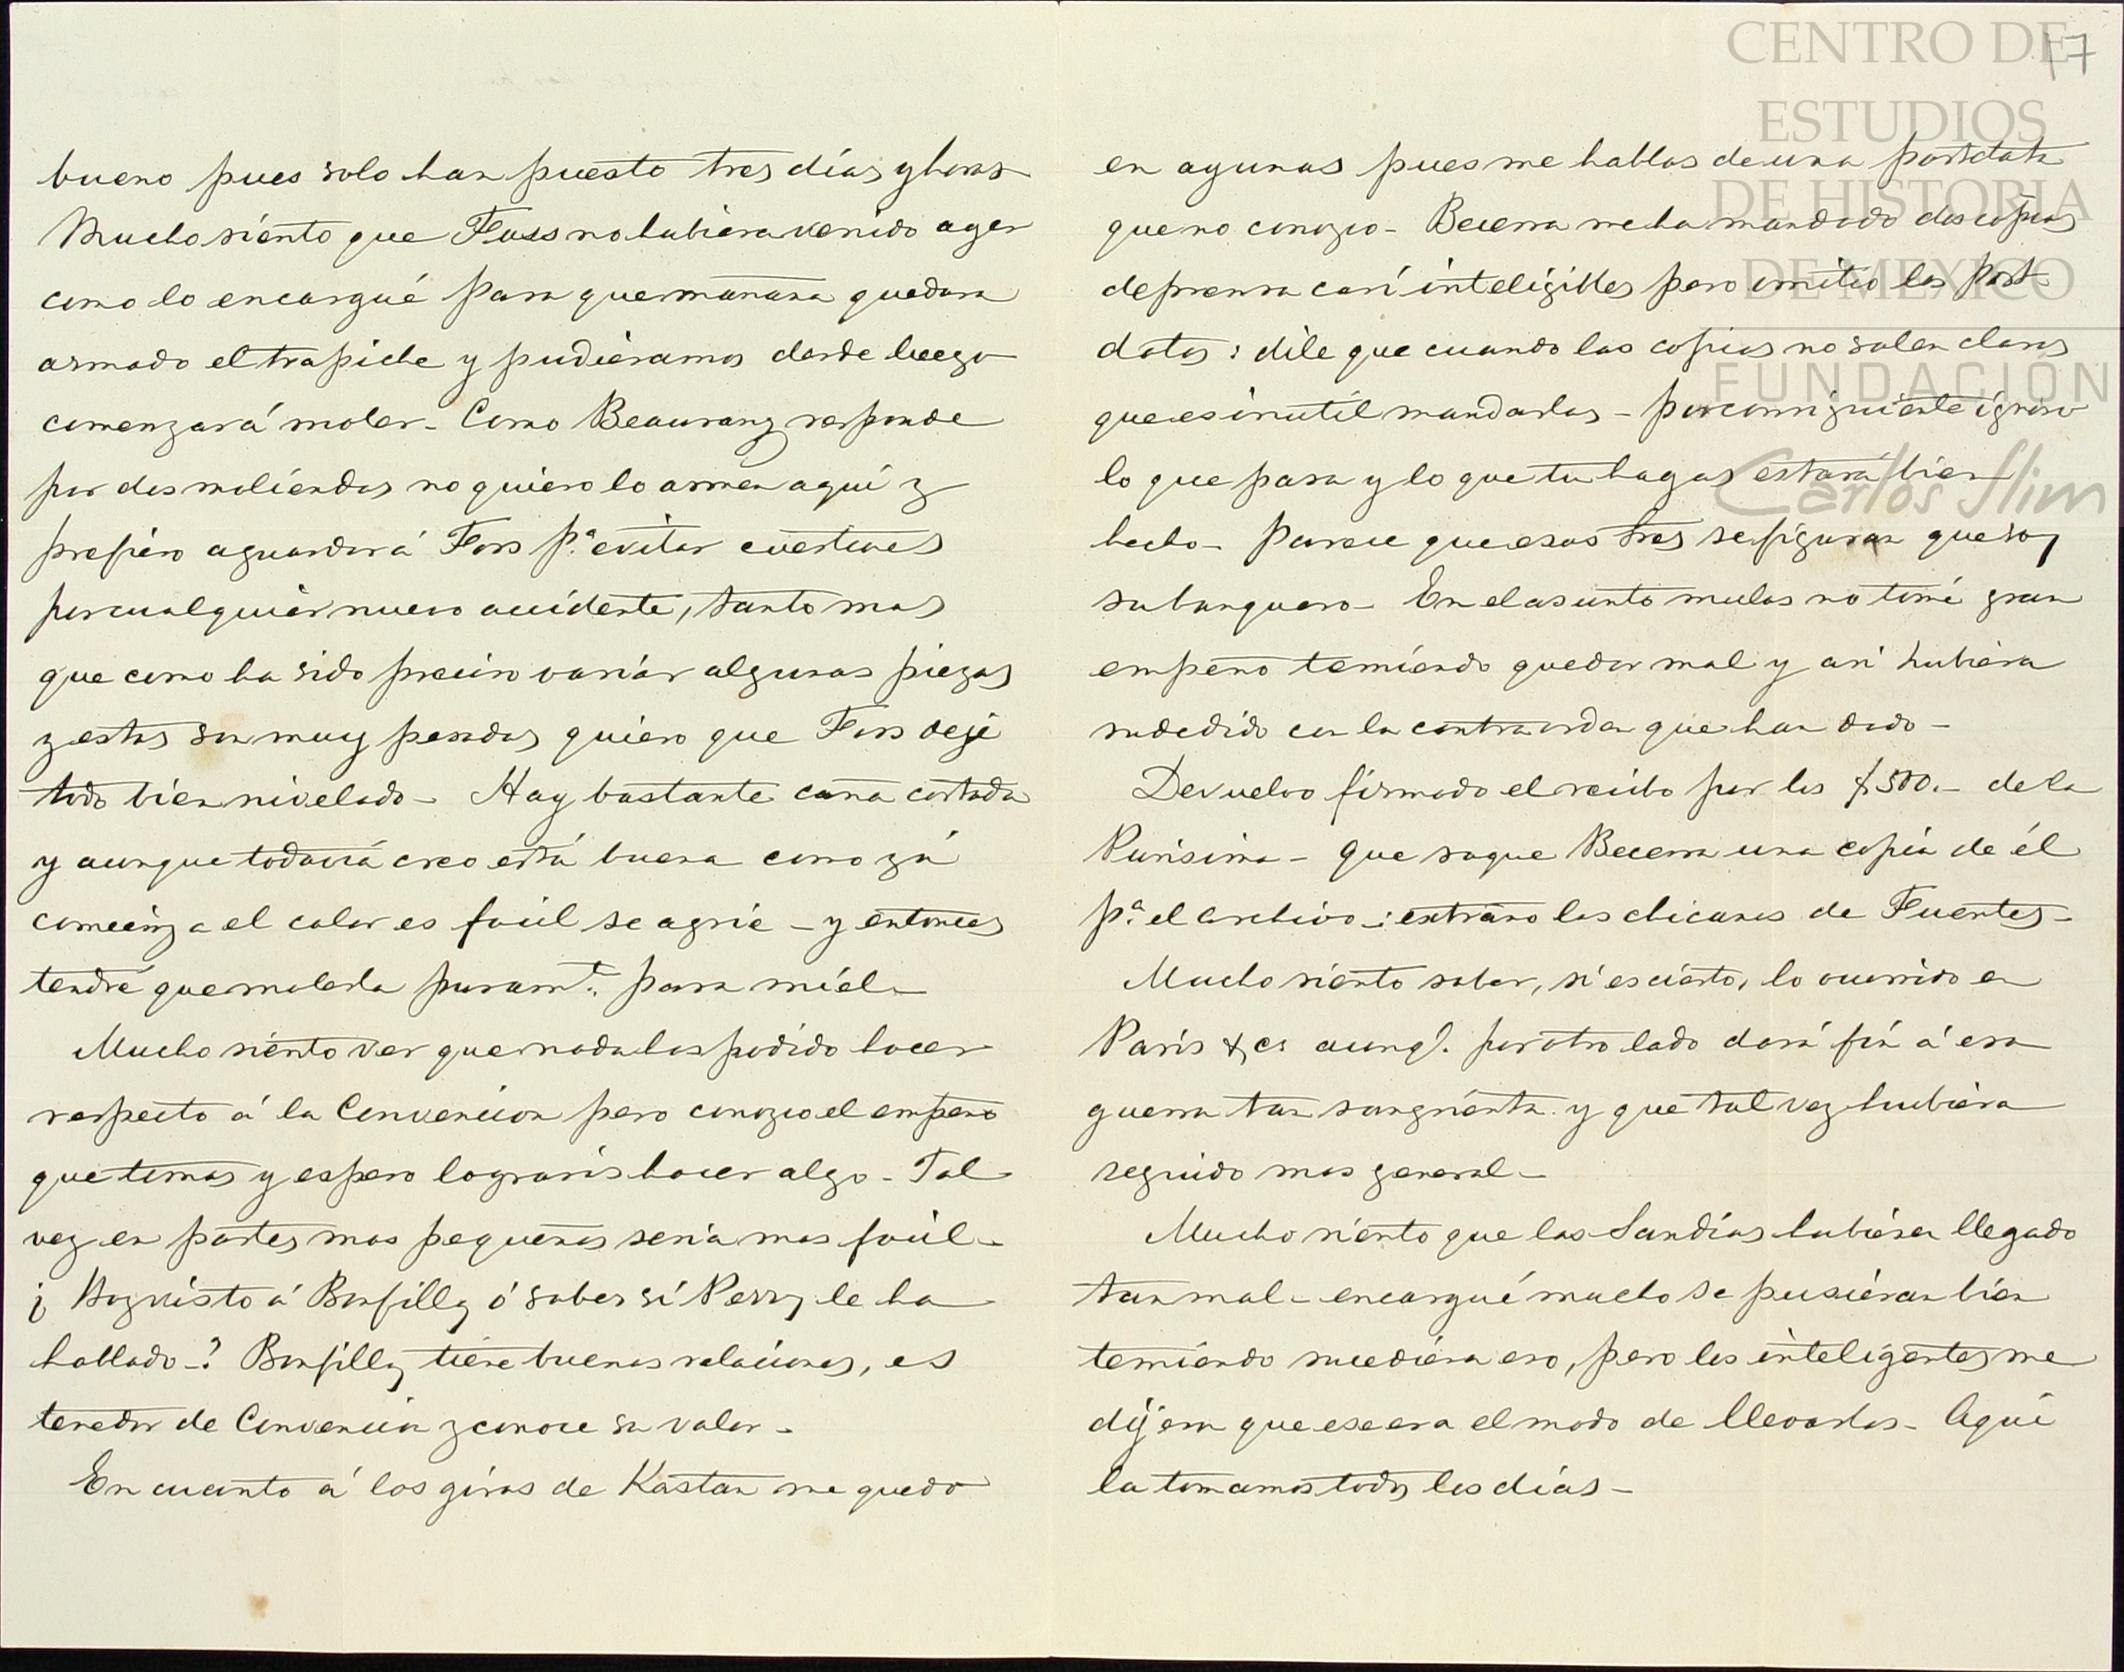 bueno pues solo han puesto tres días y horas
Mucho siento que Foss no hubiera venido ayer
como lo encargué para que mañana quedara
armado el trapiche y pudieramos desde luego
comenzar á moler_ Como Beaurang responde
por dos moliendas no quiero lo armen aquí y
prefiero aguardar á Foss p.ª evitar cuestiones
por cualquier nuevo accidente, tanto mas
que como ha sido preciso variar algunas piezas
y estas son muy pesadas quiero que Foss deje
todo bien nivelado_ Hay bastante caña cortada
y aunque todavía creo está buena como yá
comienza el calor es facil se agrie _ y entonces
tendré que molerla puram.te para miel_
Mucho siento ver que nada has podido hacer
respecto á la Convencion pero conozco el empeño
que tomas y espero lograrás hacer algo_ Tal
vez en partes mas pequeñas seria mas facil_
¿ Has visto á Bonfilly ó sabes si Perry le ha
hablado_? Bonfilly tiene buenas relaciones, es
tenedor de Convencion y conoce su valor_
En cuanto á los giros de Kastan me quedo
17
en ayunas pues me hablas de una postdata
que no conozco_ Becerra me ha mandado dos copias
de prensa casi inteligibles pero omitió las post-
datas: dile que cuando las copias no salen claras
que es inutil mandarlas _ por consiguiente ignoro
lo que pasa y lo que tu hagas estará bien
hecho_ Parece que esos tres se figuran que soy
su banquero_ En el asunto mulas no tomé gran
empeño temiendo quedar mal y asi hubiera
sudedido con la contraorden que han dado_
Devuelvo firmado el recibo por los $500._ de la
Purísima_ que saque Becerra una copia de él
p.ª el archivo_: extraño las chicanas de Fuentes_
Mucho siento saber, si es cierto, lo ocurrido en
París &c. aunq.e por otro lado dará fin á esa
guerra tan sangrienta y que tal vez hubiera
seguido mas general_
Mucho siento que las Sandías hubieran llegado
tan mal_ encargué mucho se pusieran bien
temiendo sucediera eso, pero los inteligentes me
dijeron que ese era el modo de llevarlas_ Aquí
la tomamos todos los días_
CENTRO DE
ESTUDIOS
DE HISTORIA
DE MEXICO
FUNDACIÓN
Carlos Slim